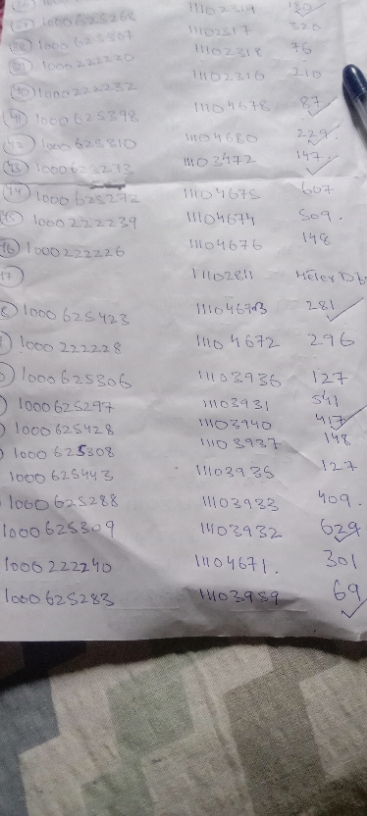 1000625268 11102319 132
1000625307 11102317 320
1000222220 11102318 76
1000222232 11102316 210
41 1000625398 11104678 87
42 1000625310 11104680 229.
43 1000622273 11103472 147
44 1000625272 11104675 607
45 1000222239 11104674 509.
46 1000222226 11104676 148
47 11102811 Meter Db
8 1000625423 11104673 281
1000222228 11104672 296
1000625306 11103936 127
1000625297 11103931 541
1000625428 11103940 417
1000625308 11103937 148
1000625443 11103935 127
1000625288 11103933 409.
1000625309 11103932 629
1000222240 11104671. 301
1000625283 11103939 69